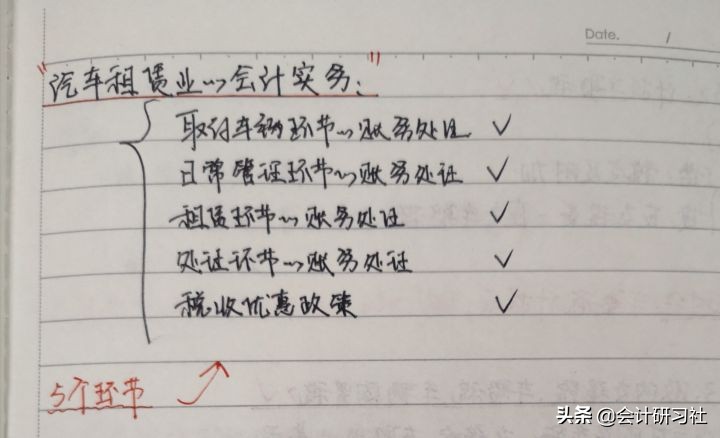 Date. /
"汽车租赁业~会计实务:"
取得车辆环节~账务处理 ✓
日常管理环节~账务处理 ✓
租赁环节~账务处理 ✓
处理环节~账务处理 ✓
税收优惠政策 ✓
5个环节
头条 @会计研习社